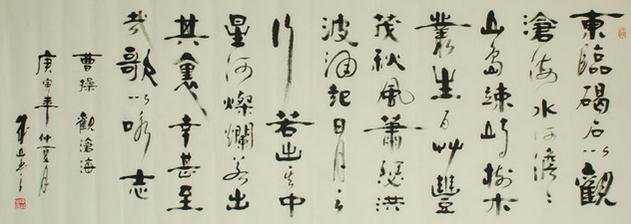 東臨碣石以觀
滄海水何澹〻
山島竦峙樹木
叢生百艸豐
茂秋風蕭瑟洪
波涌起日月之
行若出其中
星河燦爛若出
其裏幸甚至
哉歌以咏志
曹操 觀滄海
庚寅年仲夏月